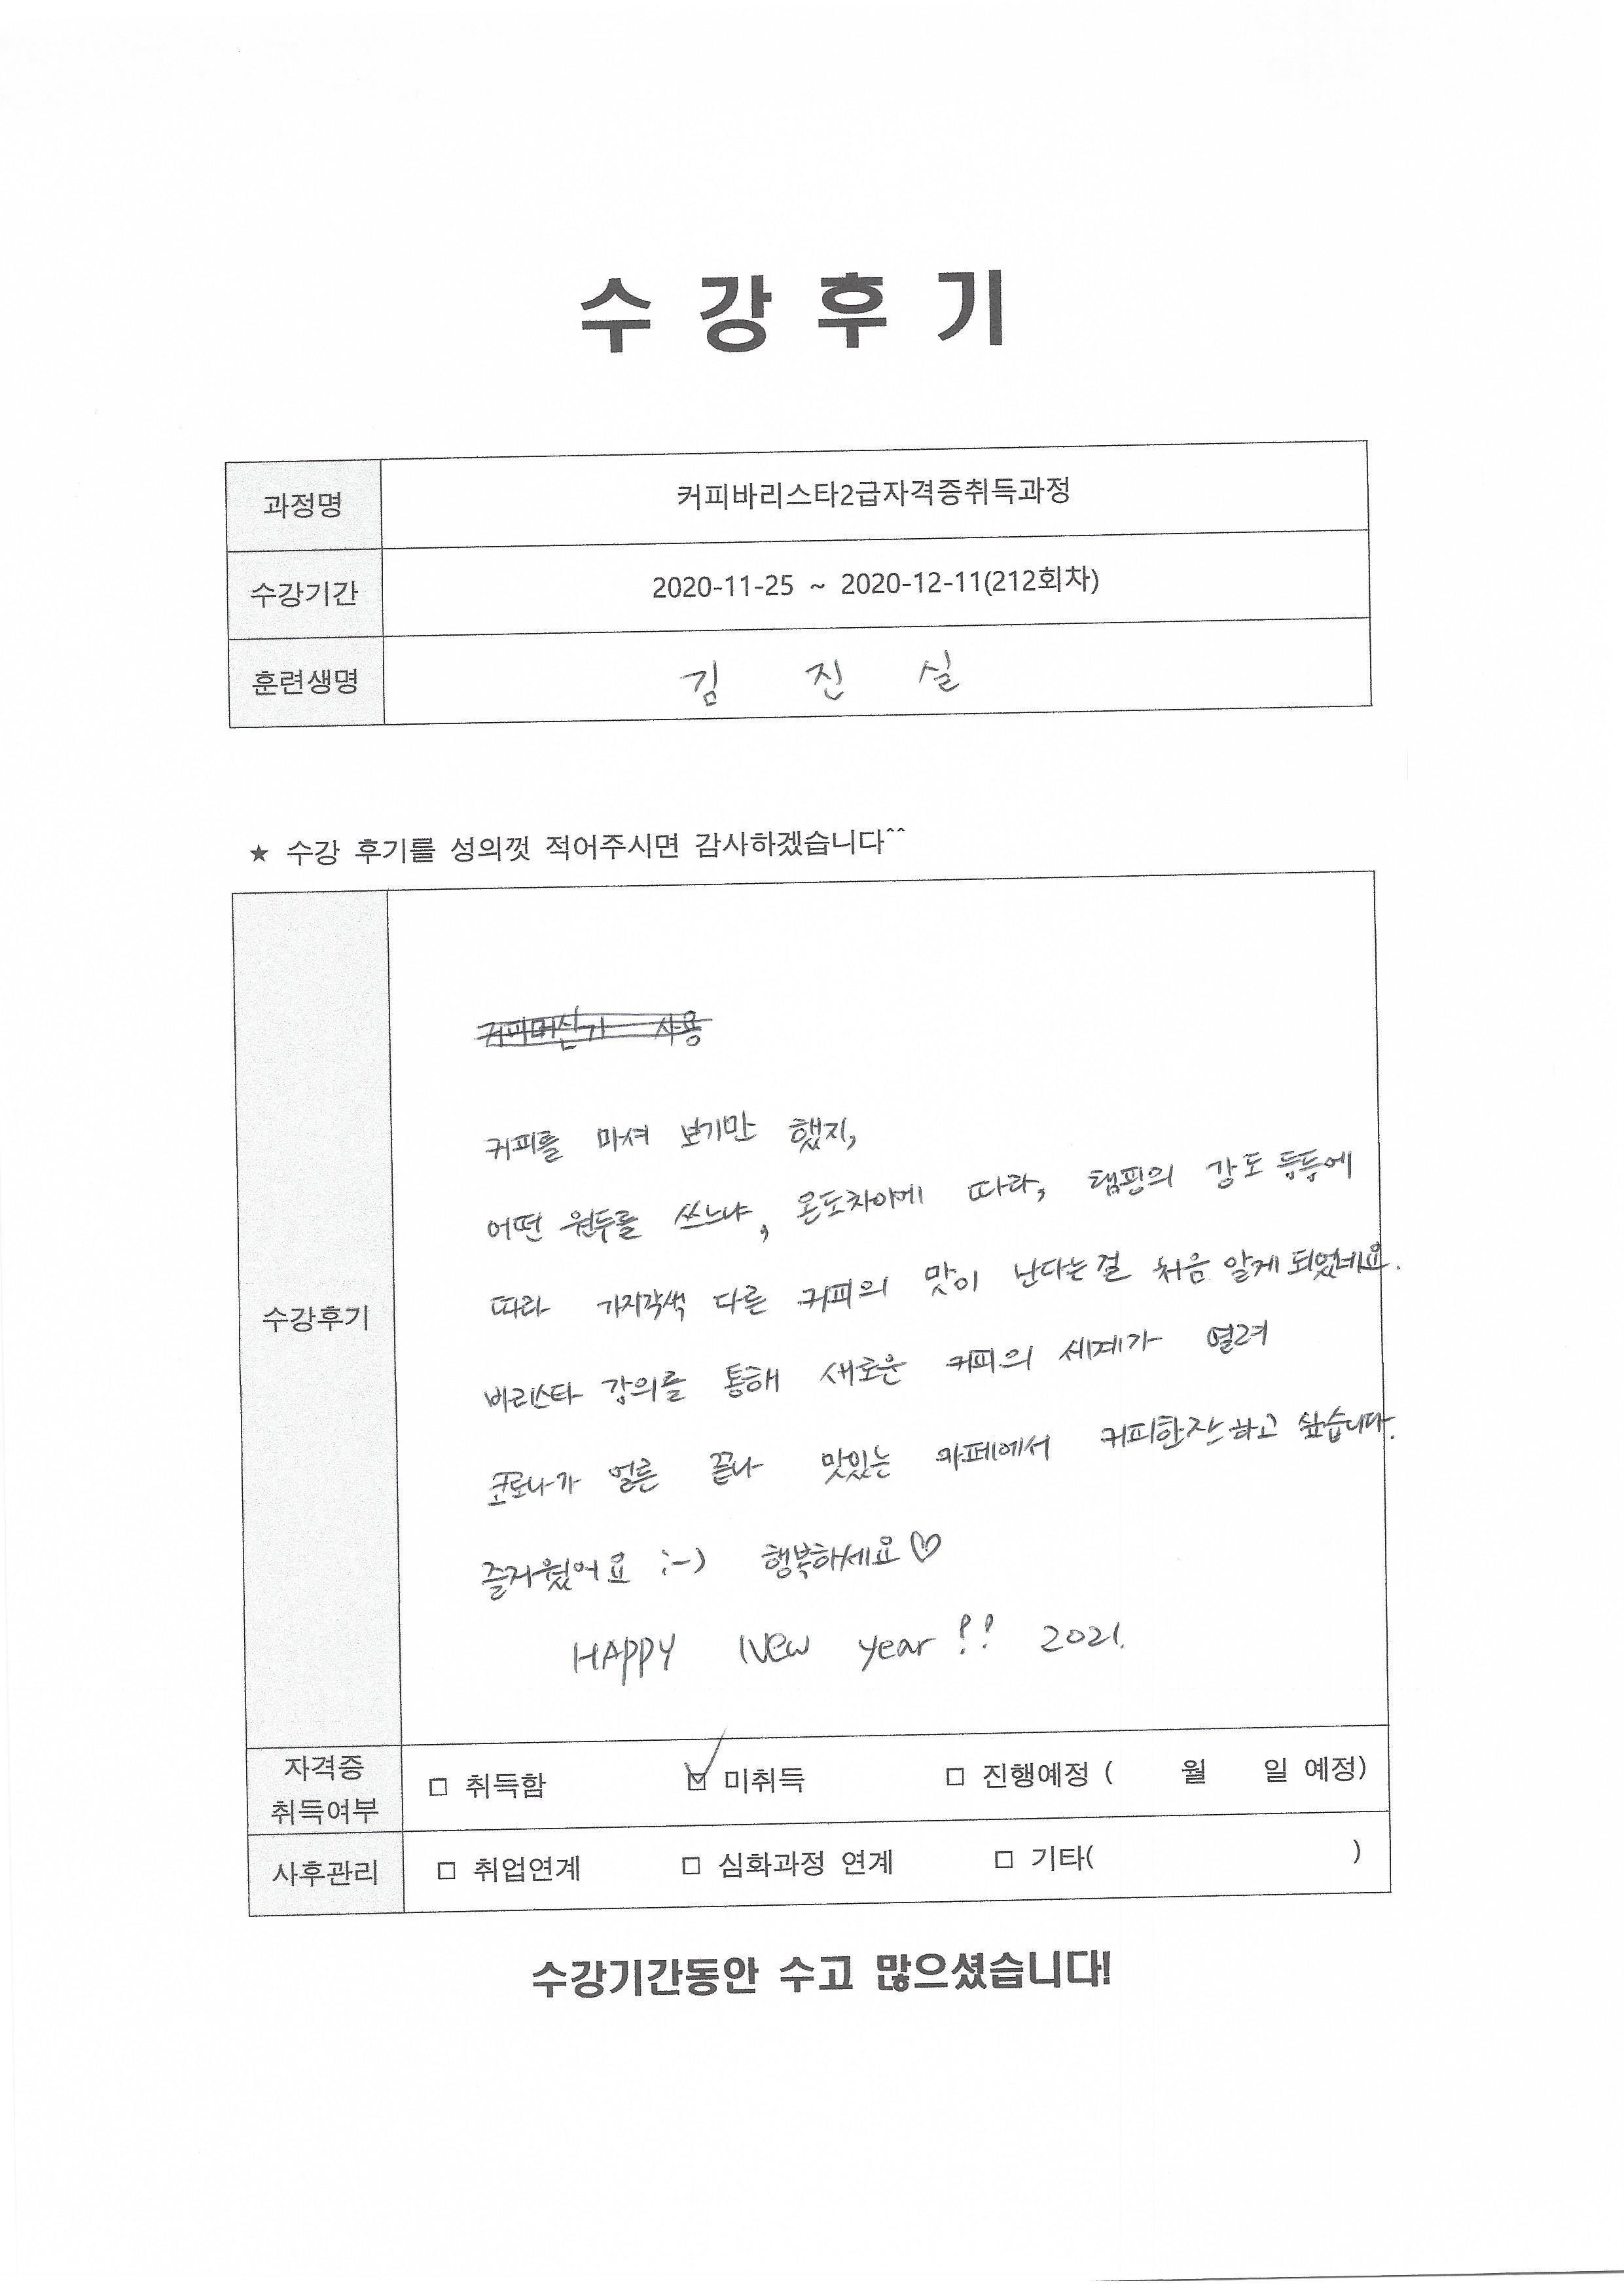 수 강 후 기
과정명 커피바리스타2급자격증취득과정
수강기간 2020-11-25 ~ 2020-12-11(212회차)
훈련생명 김 진 실
★ 수강 후기를 성의껏 적어주시면 감사하겠습니다^^
커피머신기 사용
커피를 마셔 보기만 했지,
어떤 원두를 쓰느냐, 온도차이에 따라, 탬핑의 강도 등등에
따라 가지각색 다른 커피의 맛이 난다는걸 처음 알게 되었네요.
수강후기
바리스타 강의를 통해 새로운 커피의 세계가 열려
코로나가 얼른 끝나 맛있는 카페에서 커피한잔 하고 싶습니다.
즐거웠어요 :-) 행복하세요♡
HAPPY New year!! 2021.
자격증 취득여부 □ 취득함 ☑ 미취득 □ 진행예정 ( 월 일 예정)
사후관리 □ 취업연계 □ 심화과정 연계 □ 기타( )
수강기간동안 수고 많으셨습니다!